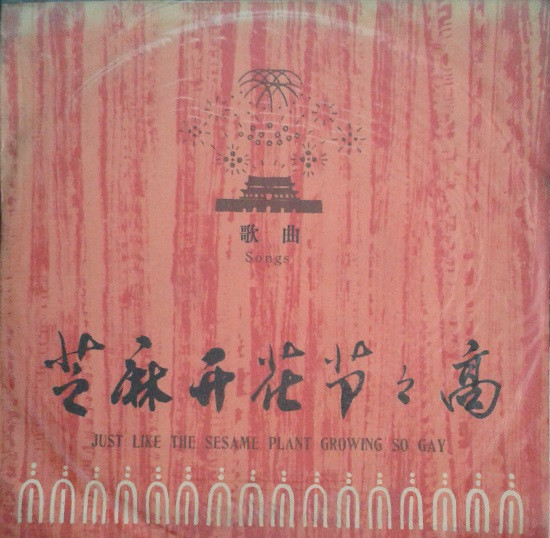 歌曲
Songs
芝麻开花节々高
JUST LIKE THE SESAME PLANT GROWING SO GAY